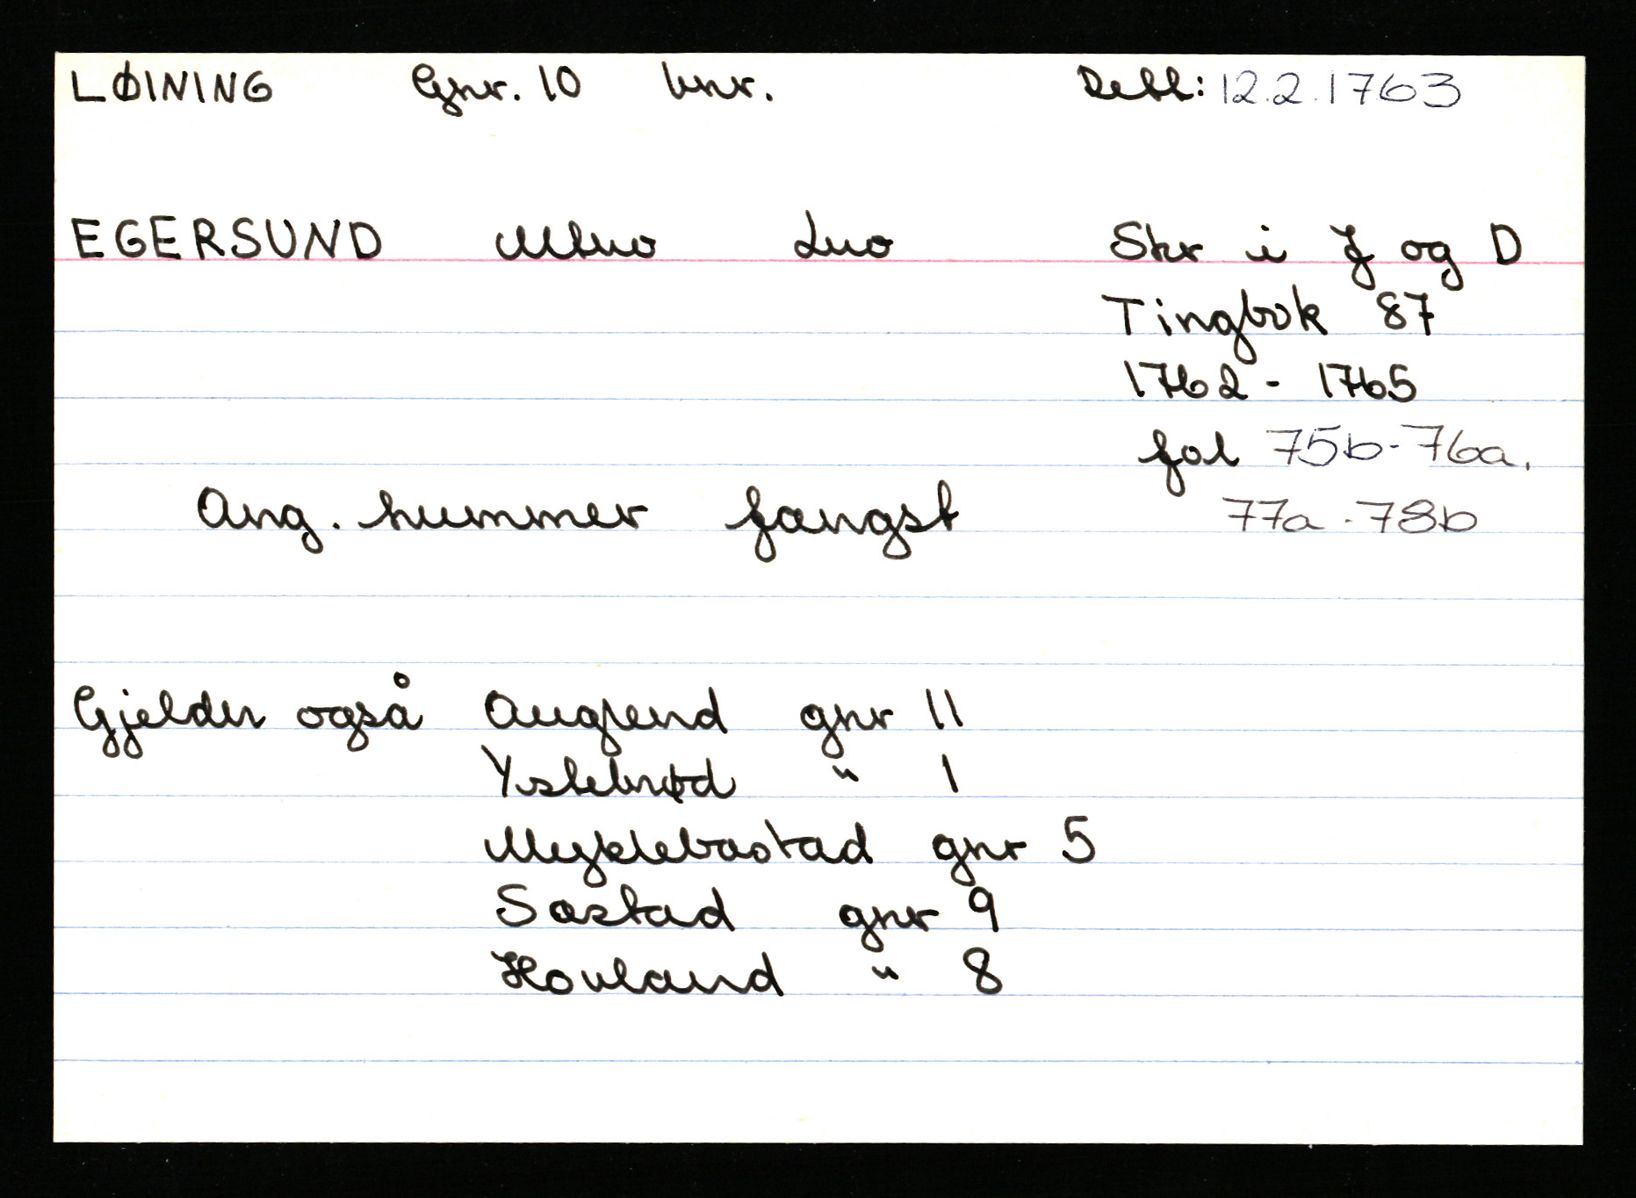 LØINING Gnr. 10 bnr. Retl: 12.2.1763
EGERSUND Mluo Luo Skr i J og D
Tingbok 87
1762 - 1765
fol 75b-76a.
Ang. hummer fangst 77a-78b
Gjelder også Auglend gnr 11
Ystebrød " 1
Myklebostad gnr 5
Søstad gnr 9
Hovland " 8